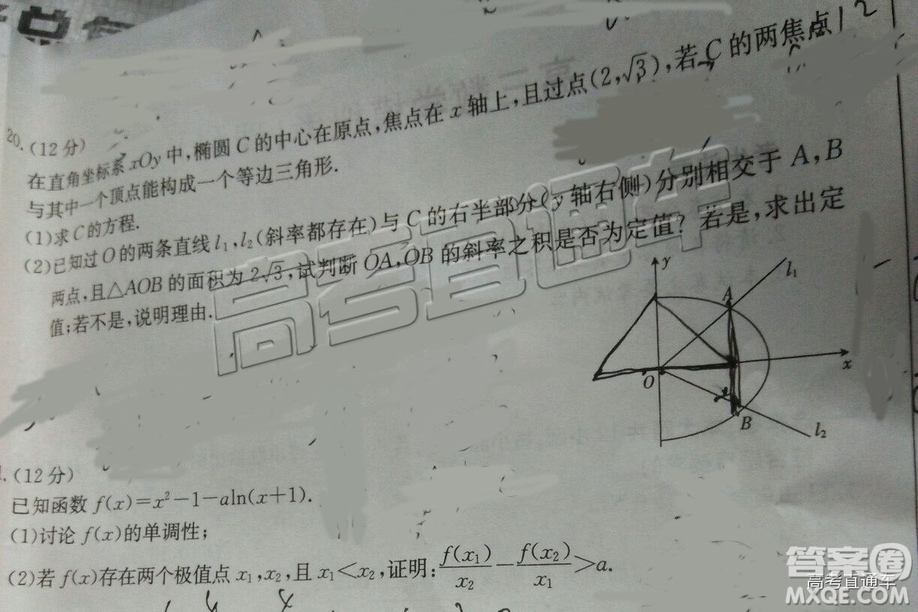 20.(12分)
在直角坐标系xOy中,椭圆C的中心在原点,焦点在x轴上,且过点(2,√3),若C的两焦点
与其中一个顶点能构成一个等边三角形.
(1)求C的方程.
(2)已知过O的两条直线l₁,l₂(斜率都存在)与C的右半部分(y轴右侧)分别相交于A,B
两点,且△AOB的面积为2√3,试判断OA,OB的斜率之积是否为定值?若是,求出定
值;若不是,说明理由.
y
l₁
A
O
x
B
l₂
.(12分)
已知函数f(x)=x²-1-aln(x+1).
(1)讨论f(x)的单调性;
(2)若f(x)存在两个极值点x₁,x₂,且x₁<x₂,证明:f(x₁)/x₂-f(x₂)/x₁>a.
高考直通车
答案圈
高考直通车
MXQE.COM